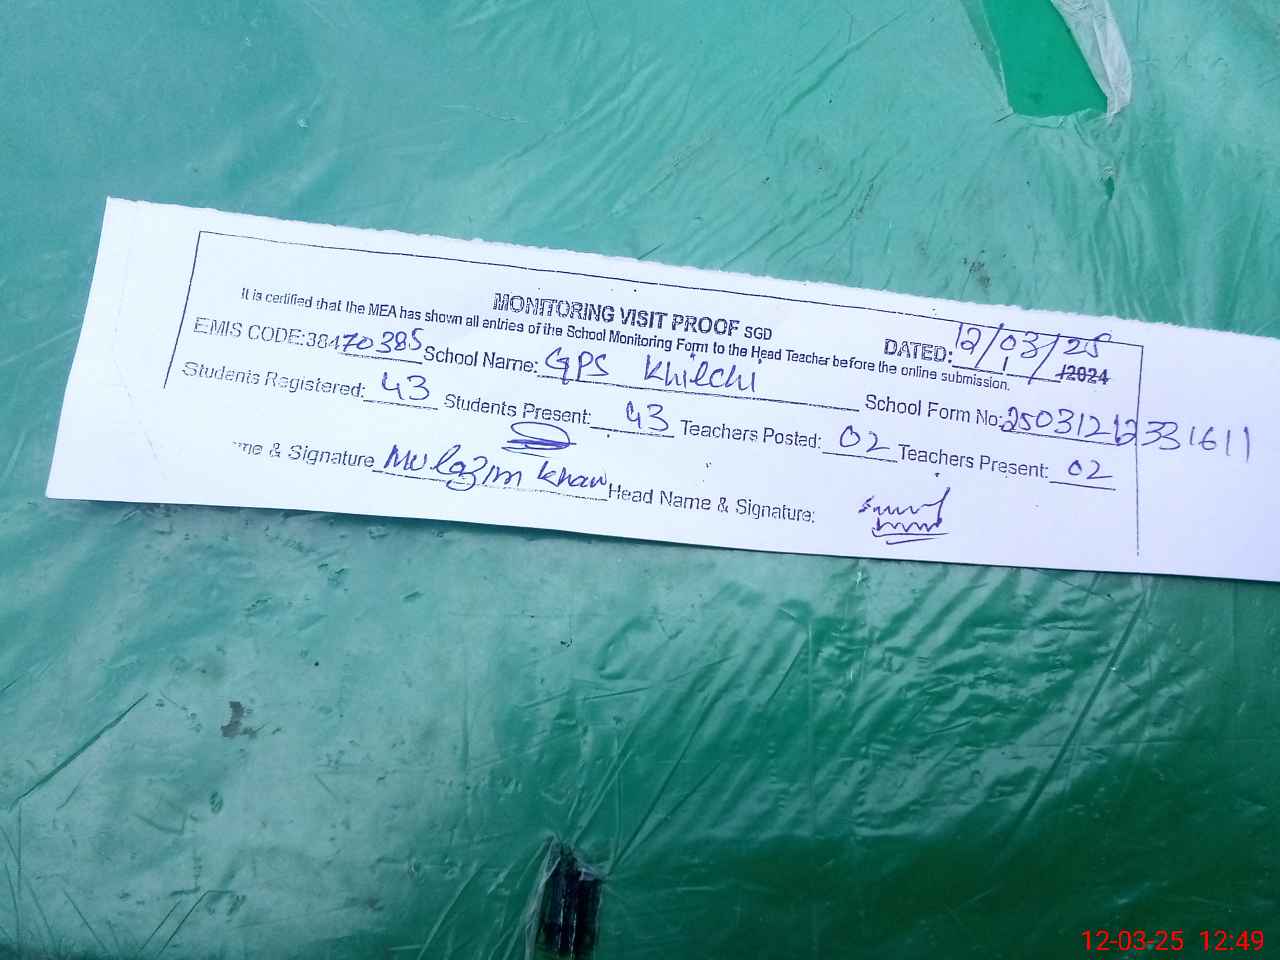 MONITORING VISIT PROOF SGD
DATED: 12/03/25 /2024
It is certified that the MEA has shown all entries of the School Monitoring Form to the Head Teacher before the online submission.
EMIS CODE:38470385 School Name: GPS Khilchi School Form No: 25031212331611
Students Registered: 43 Students Present: 43 Teachers Posted: 02 Teachers Present: 02
me & Signature Mulazim Khan Head Name & Signature:
12-03-25 12:49